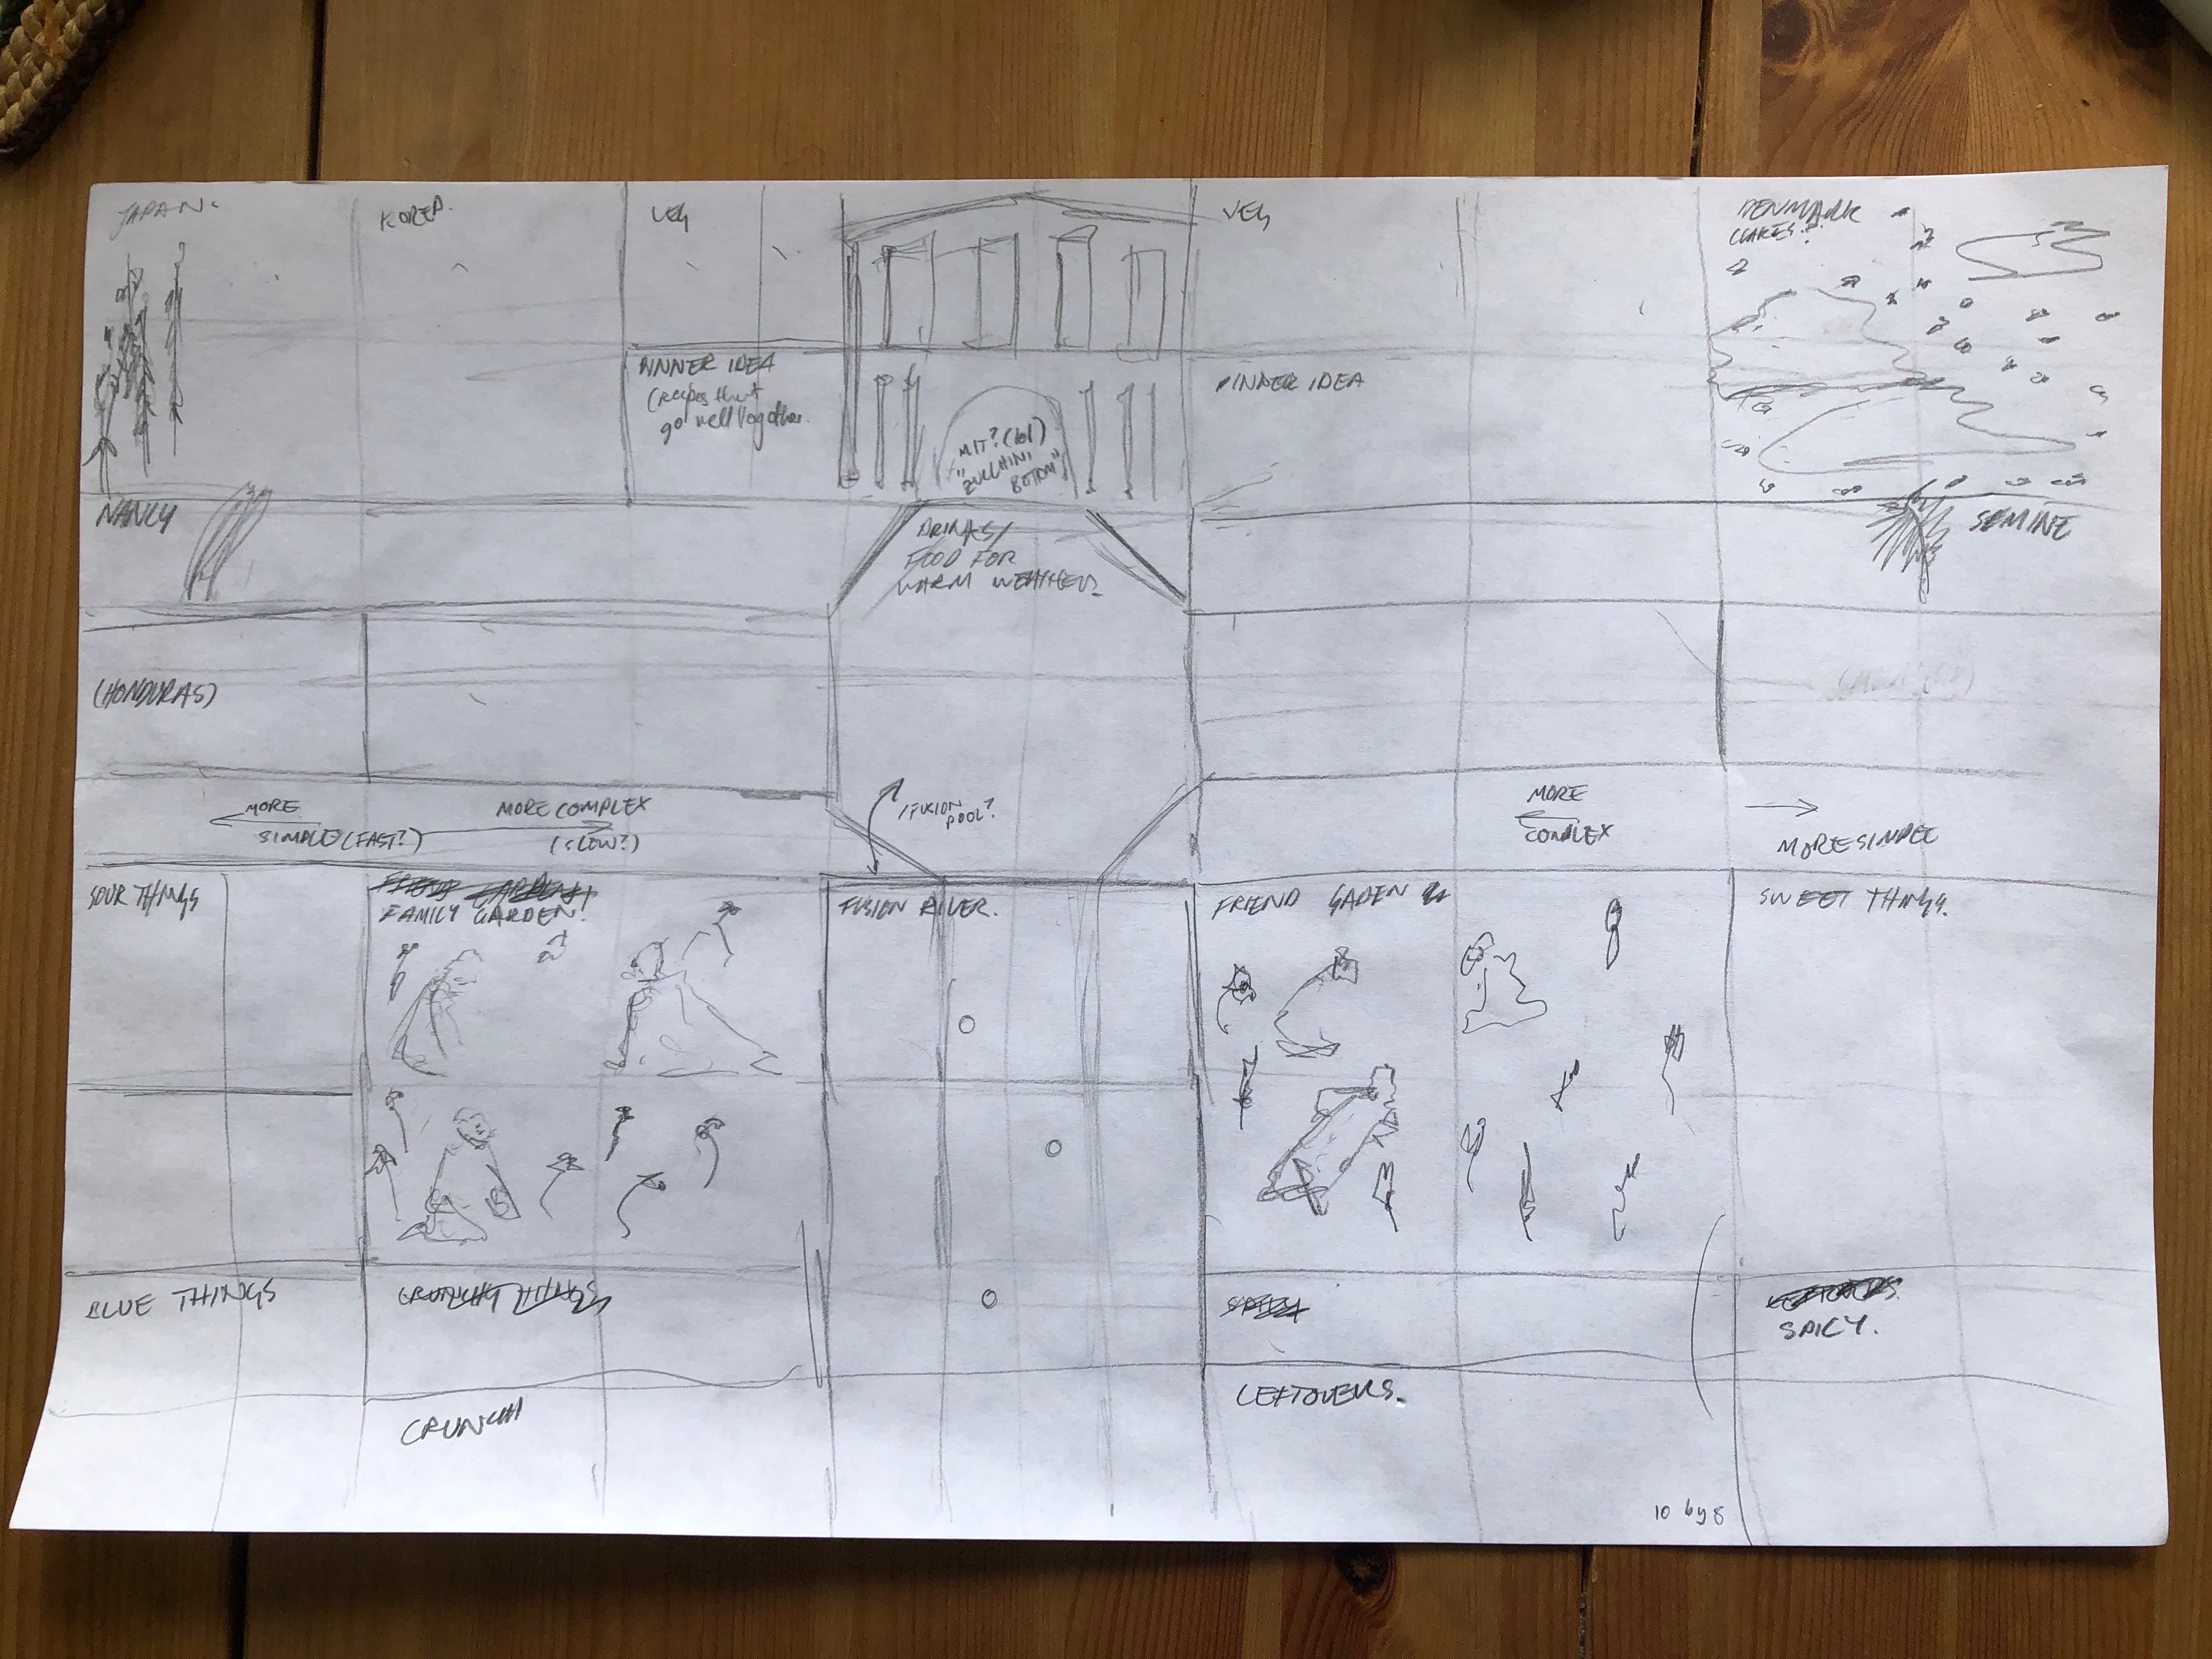 JAPAN.
KOREA.
VEG
VEG
DENMARK
DINNER IDEA
(recipes that
go well together.
DINNER IDEA
MIT? (lol)
"ZUCCHINI
BOTTOM"
NANCY
DRINKS/
FOOD FOR
WARM WEATHER.
SEMINE
(HONDURAS)
MORE
SIMPLE (FAST?)
MORE COMPLEX
(SLOW?)
/FUSION
POOL?
MORE
COMPLEX
MORE SIMPLE
SOUR THINGS
FRIEND GARDEN!
FAMILY GARDEN!
FUSION RIVER.
FRIEND GADEN
SWEET THINGS.
BLUE THINGS
CRUNCHY THINGS
SPICY
LEFTOVERS.
SPICY.
CRUNCH
LEFTOVERS.
10 by 8